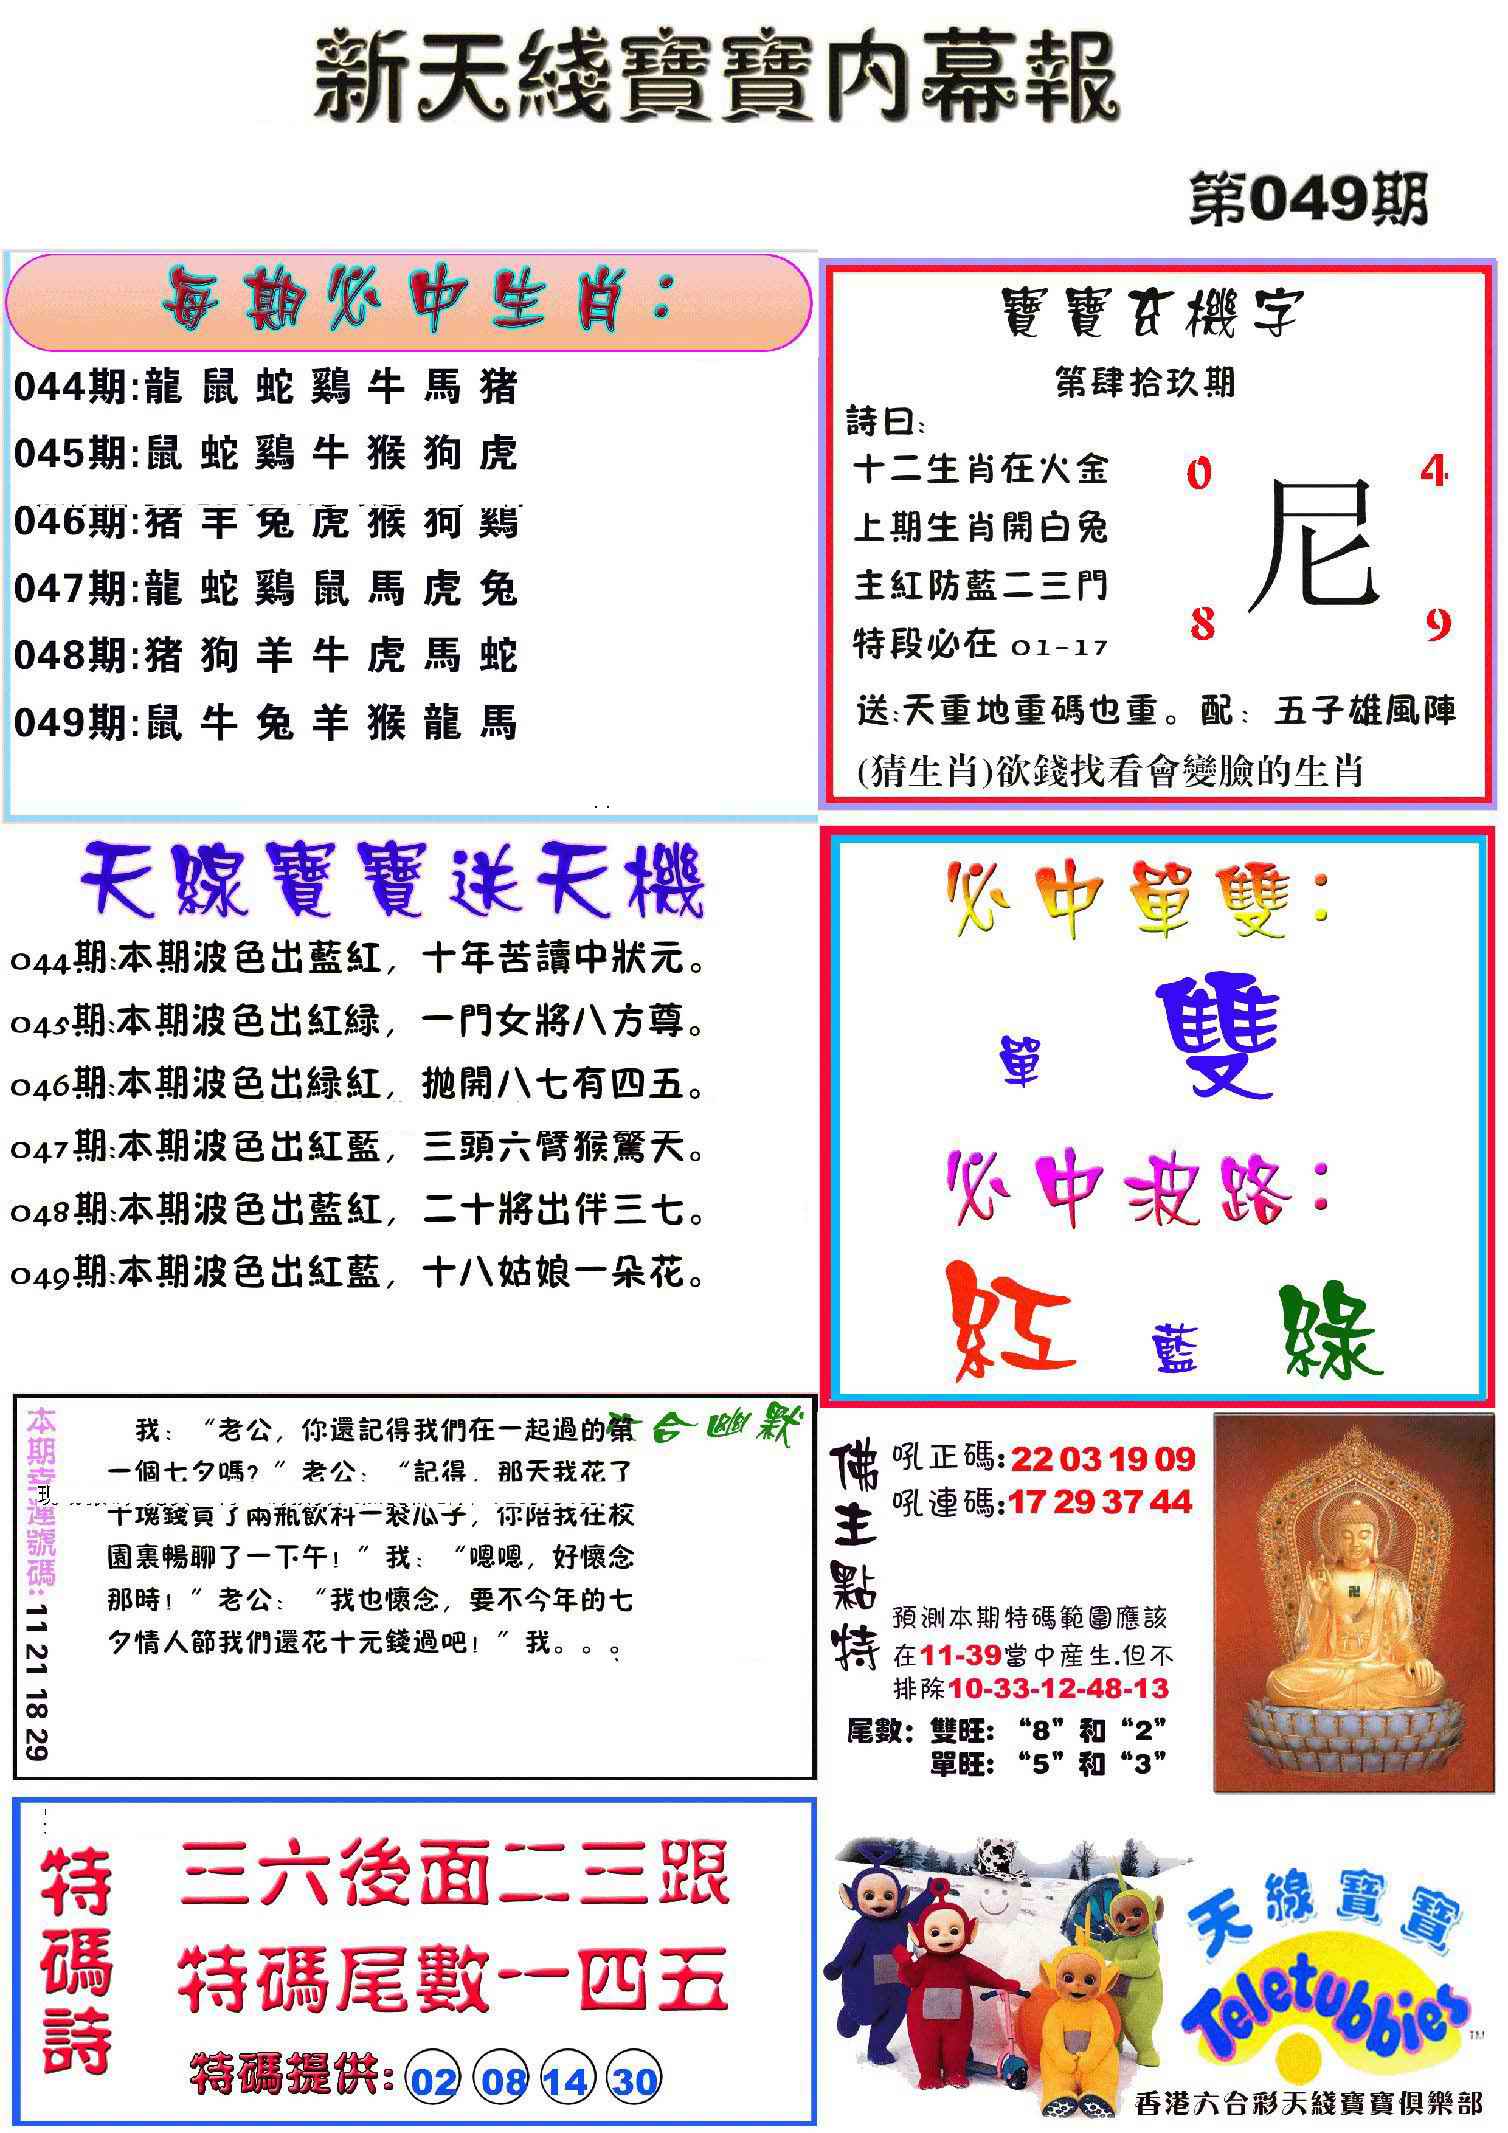 新天綫寶寶内幕報
第049期
每期必中生肖：
044期:龍 鼠 蛇 鷄 牛 馬 猪
045期:鼠 蛇 鷄 牛 猴 狗 虎
046期:猪 羊 兔 虎 猴 狗 鷄
047期:龍 蛇 鷄 鼠 馬 虎 兔
048期:猪 狗 羊 牛 虎 馬 蛇
049期:鼠 牛 兔 羊 猴 龍 馬
寶寶玄機字
第肆拾玖期
詩曰:
十二生肖在火金
上期生肖開白兔
主紅防藍二三門
特段必在 01-17
0 4
尼
8 9
送:天重地重碼也重。配：五子雄風陣
(猜生肖)欲錢找看會變臉的生肖
天線寶寶送天機
044期:本期波色出藍紅，十年苦讀中狀元。
045期:本期波色出紅緑，一門女將八方尊。
046期:本期波色出緑紅，拋開八七有四五。
047期:本期波色出紅藍，三頭六臂猴驚天。
048期:本期波色出藍紅，二十將出伴三七。
049期:本期波色出紅藍，十八姑娘一朵花。
必中單雙：
單 雙
必中波路：
紅 藍 綠
本期幸運號碼: 11 21 18 29
六合幽默
我：“老公，你還記得我們在一起過的第
一個七夕嗎？”老公：“記得，那天我花了
十塊錢買了兩瓶飲料一袋瓜子，你陪我在校
園裏暢聊了一下午！”我：“嗯嗯，好懷念
那時！”老公：“我也懷念，要不今年的七
夕情人節我們還花十元錢過吧！”我。。。
佛主點特
吼正碼:22 03 19 09
吼連碼:17 29 37 44
預測本期特碼範圍應該
在11-39當中産生.但不
排除10-33-12-48-13
尾數：雙旺：“8”和“2”
單旺：“5”和“3”
特碼詩
三六後面二三跟
特碼尾數一四五
特碼提供: 02 08 14 30
天線寶寶
Teletubbies
TM
香港六合彩天綫寶寶俱樂部